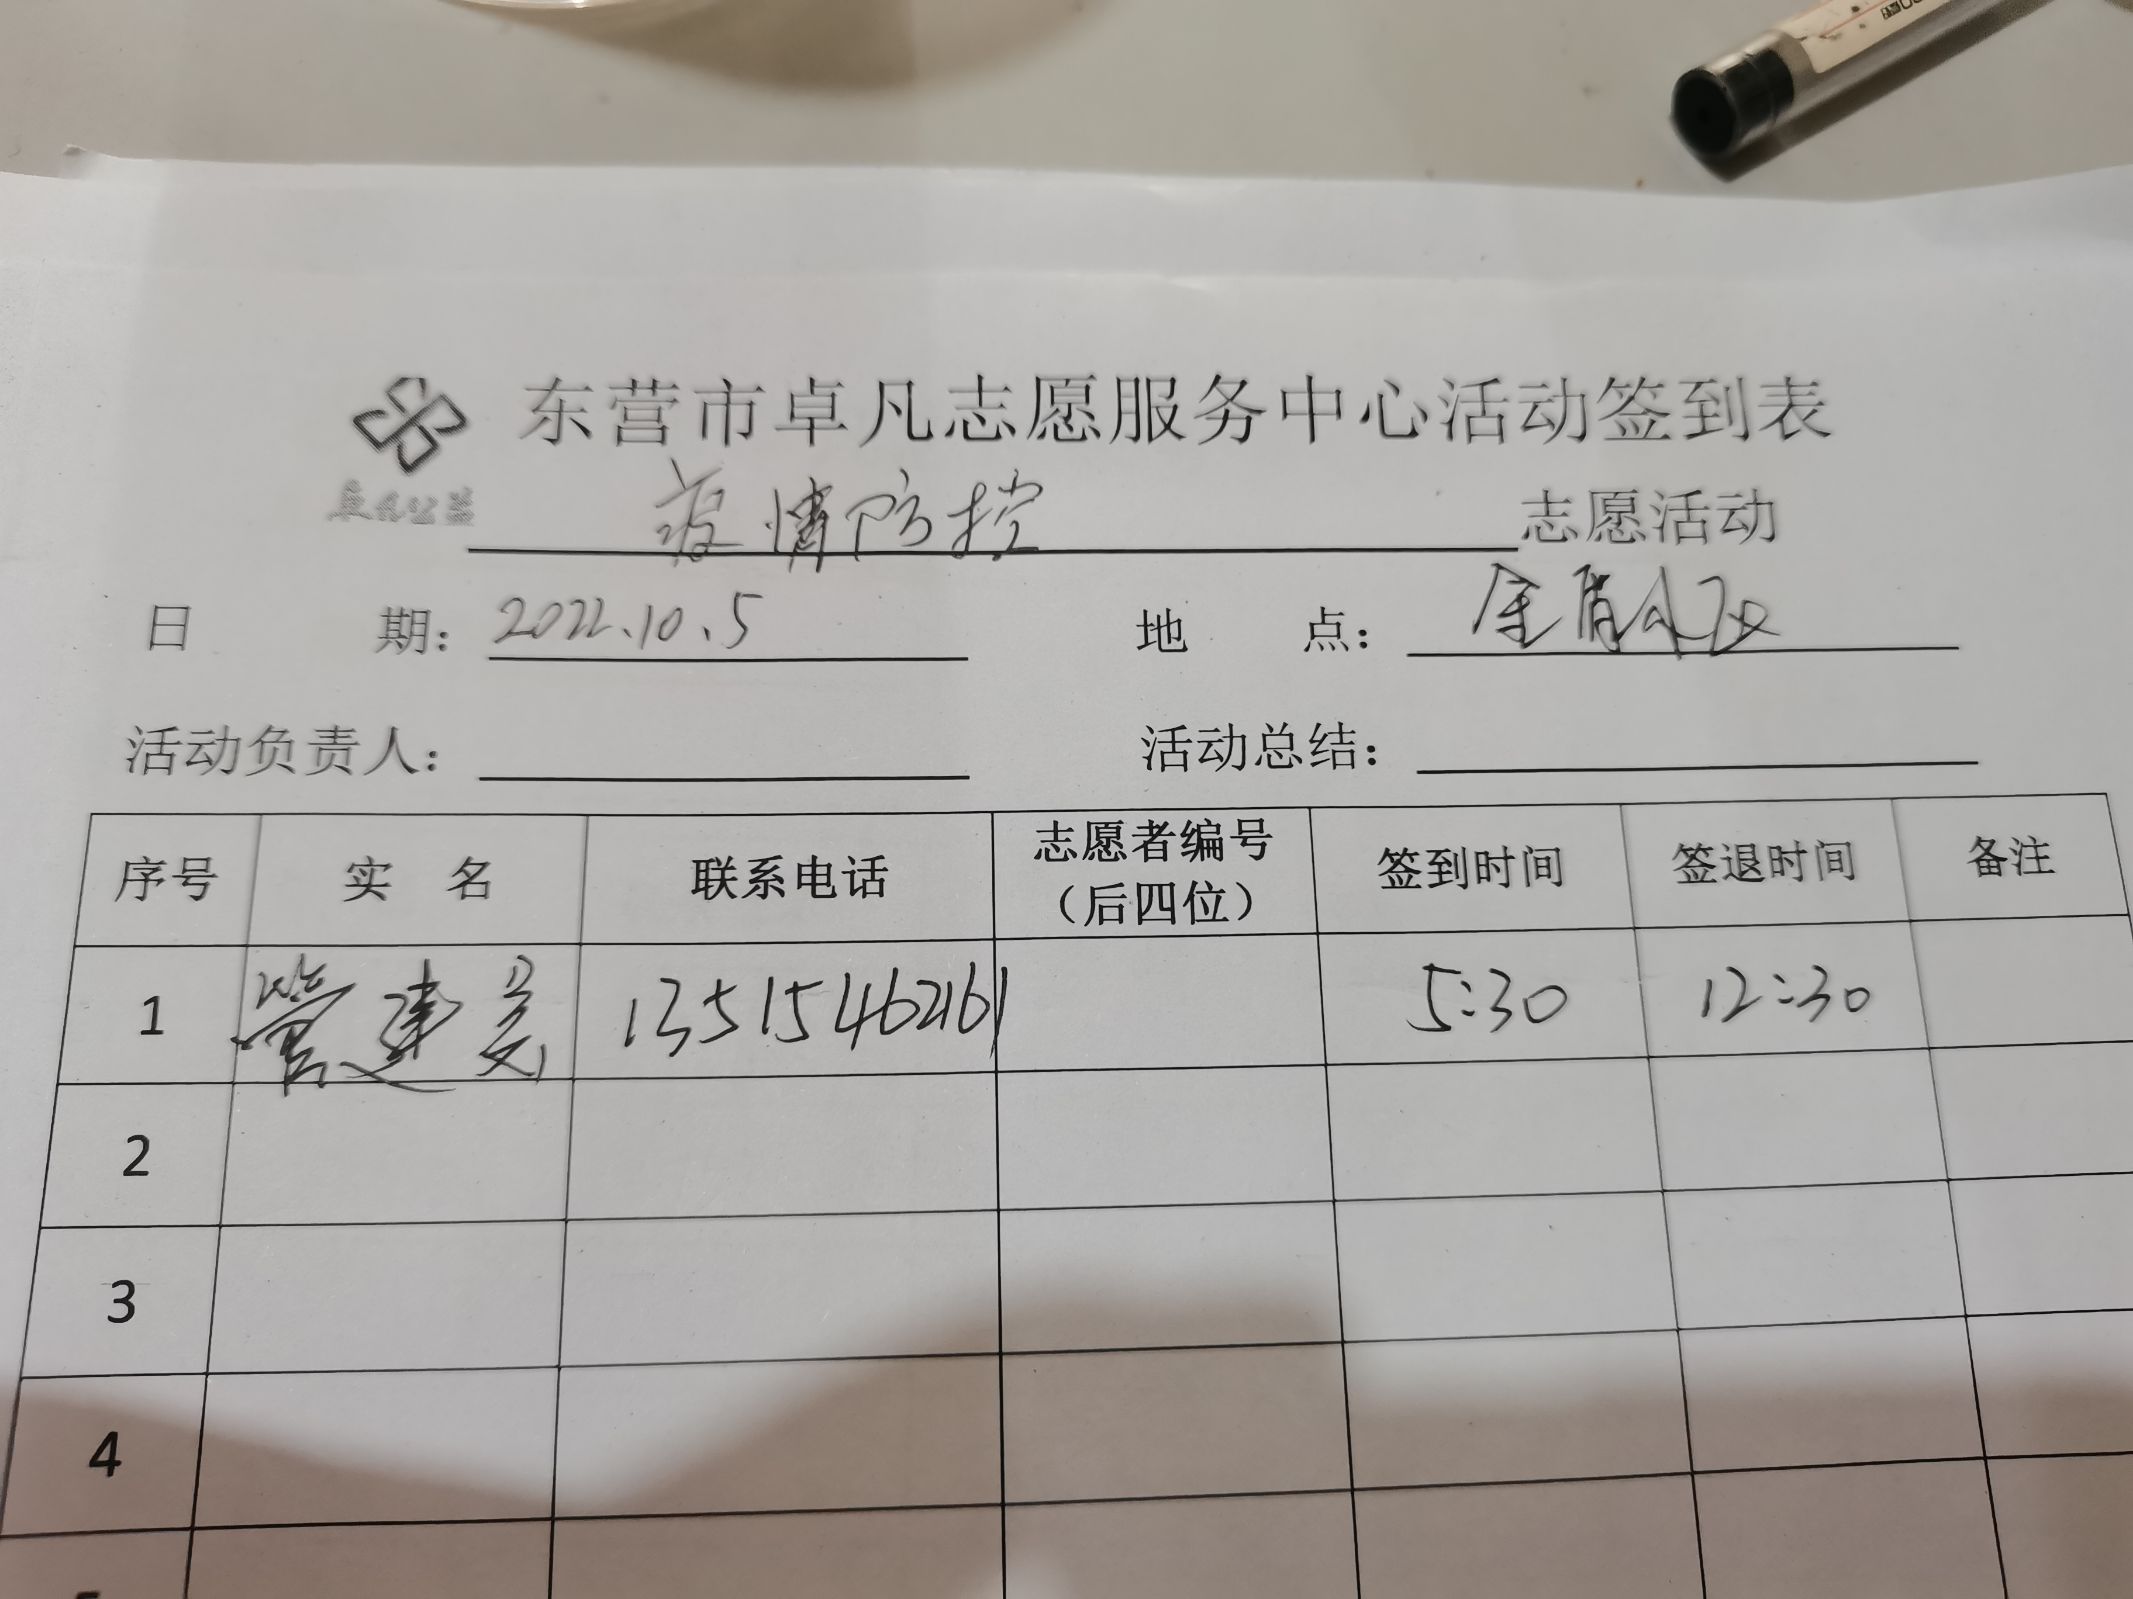 东营市卓凡志愿服务中心活动签到表
疫情防控 志愿活动
日 期: 2022.10.5 地 点: 金盾小区
活动负责人: 活动总结:
序号 实 名 联系电话 志愿者编号(后四位) 签到时间 签退时间 备注
1 管建美 13515462161 5:30 12:30
2
3
4